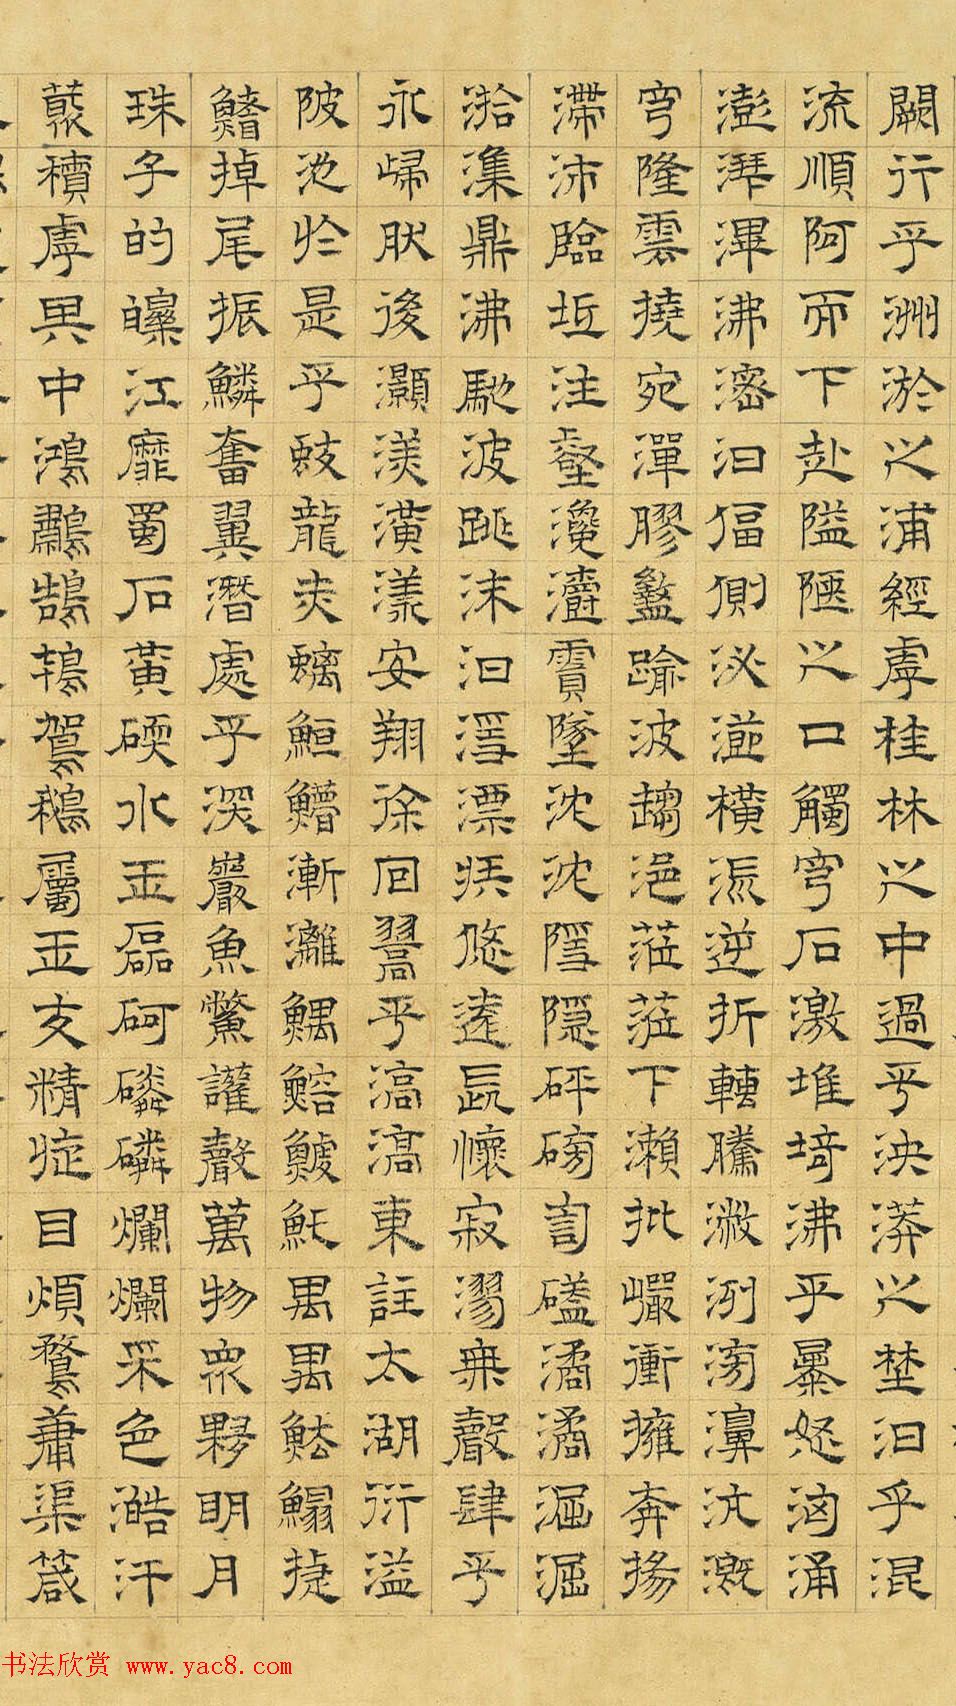 闕行乎洲淤之浦經虖桂林之中過乎泱漭之壄汩乎混
流順阿而下赴隘陿之口觸穹石激堆埼沸乎暴怒洶涌
澎湃滭沸滵汩偪側泌㴸橫流逆折轉騰潎洌滂濞沆溉
穹隆雲撓宛潬膠盭踰波趨浥蒞蒞下瀨批巖衝擁奔揚
滯沛臨坻注壑瀺灂霣墜沈沈隱隱砰磅訇磕潏潏淈淈
湁潗鼎沸馳波跳沫汩㵫漂疾悠遠長懷寂漻無聲肆乎
永歸然後灝溔潢漾安翔徐回翯乎滈滈東註太湖衍溢
陂池於是乎蛟龍赤螭䱭䲛漸離鰅鰫鰬魠禺禺魼鰨揵
鰭掉尾振鱗奮翼潛處乎深巖魚鱉讙聲萬物眾夥明月
珠子的皪江靡蜀石黃碝水玉磊砢磷磷爛爛采色澔汗
藂積虖其中鴻鷫鵠鴇鴐鵝屬玉交精旋目煩鶩庸渠箴